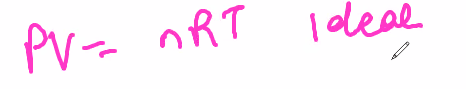 PV = nRT Ideal